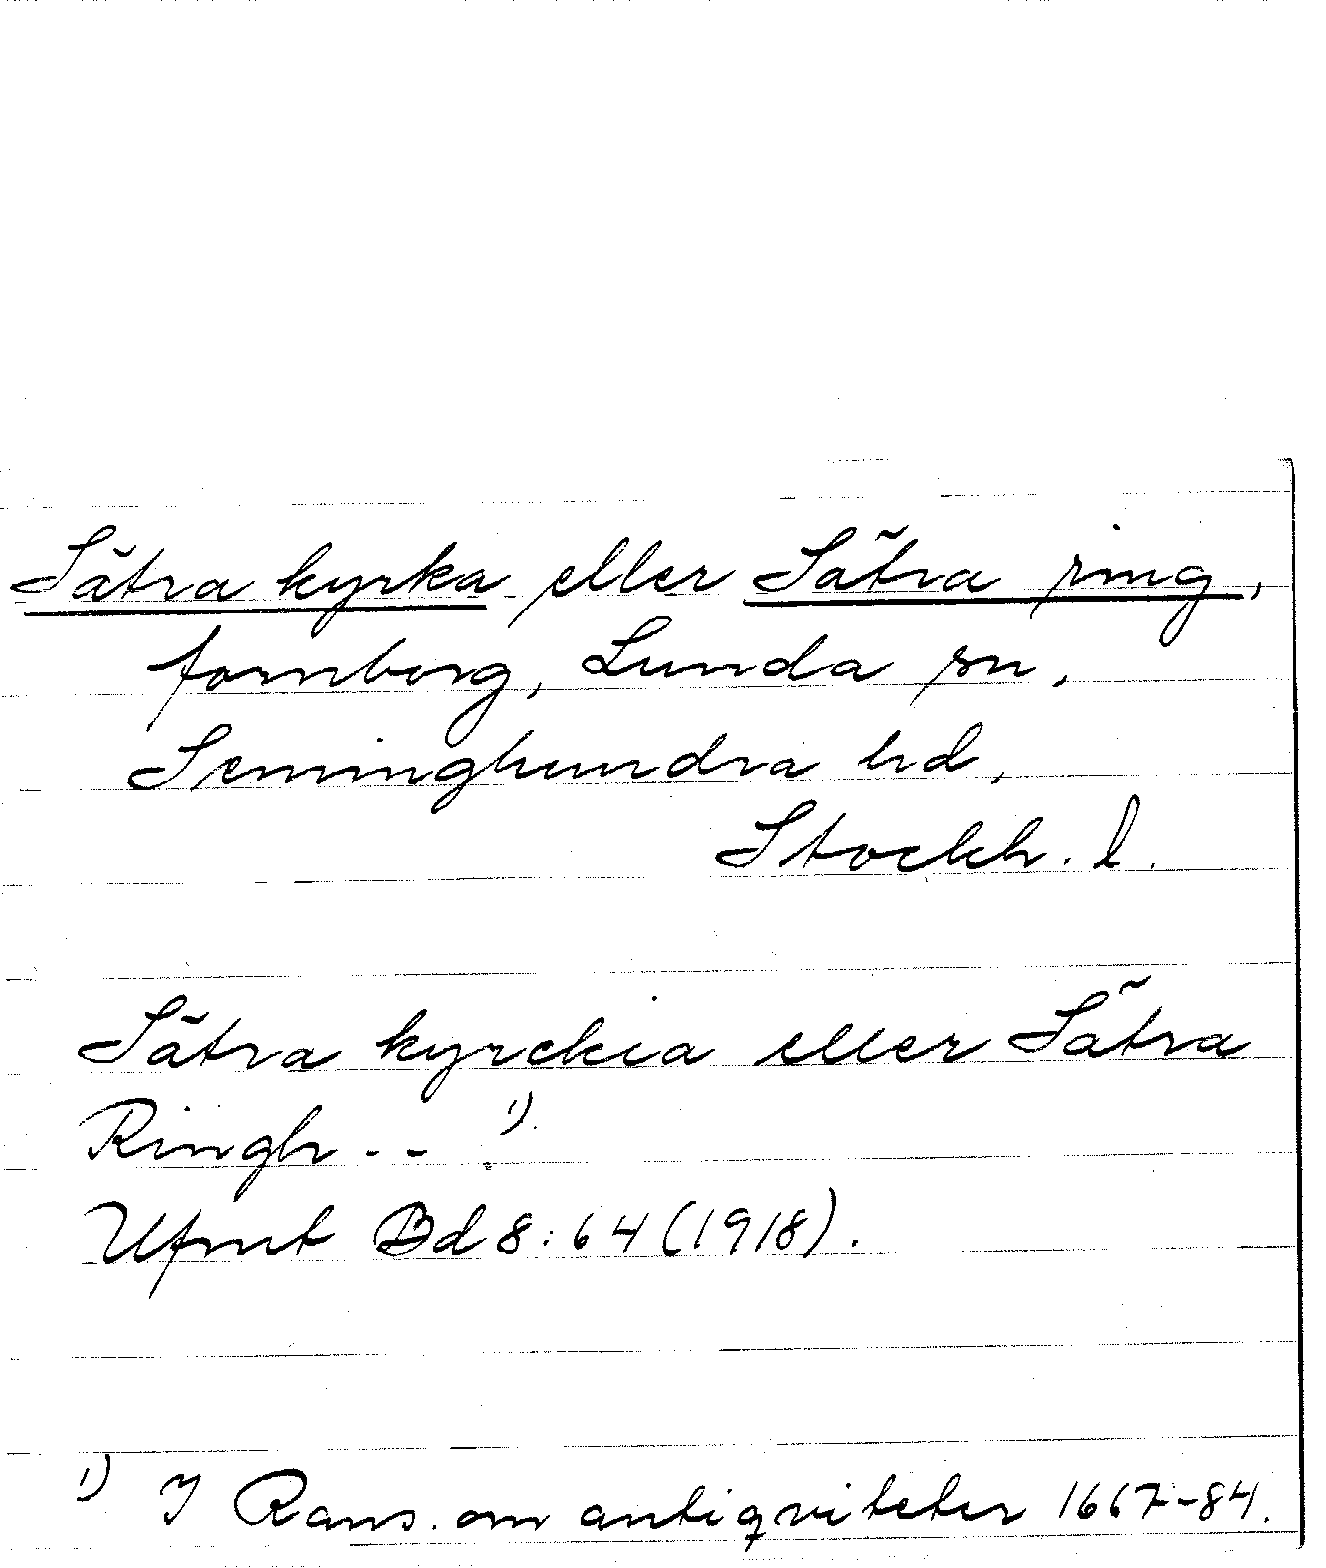 Sätra kyrka eller Sätra ring,
fornborg, Lunda sn,
Seminghundra hd,
Stockh. l.
Sätra kyrckia eller Sätra
Ringh - - 1).
Ufmt Bd 8:64 (1918).
1) I Rans. om antiqviteter 1667-84.